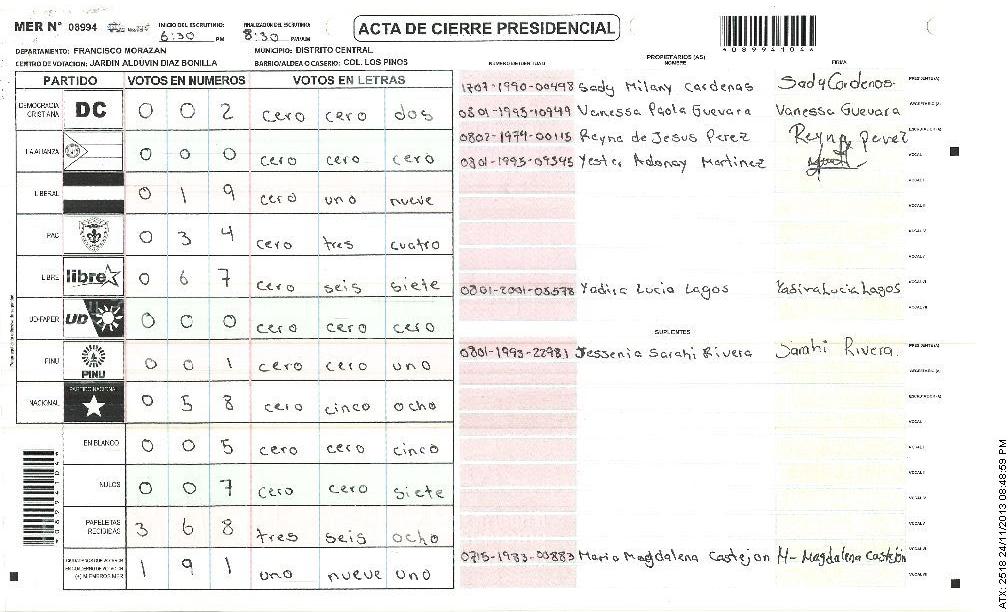 MER N° 08994 INICIO DEL ESCRUTINIO: 6:30 PM FINALIZACION DEL ESCRUTINIO: 8:30 PM/AM
ACTA DE CIERRE PRESIDENCIAL
DEPARTAMENTO: FRANCISCO MORAZAN MUNICIPIO: DISTRITO CENTRAL
CENTRO DE VOTACION: JARDIN ALDUVIN DIAZ BONILLA BARRIO/ALDEA O CASERIO: COL. LOS PINOS
PARTIDO VOTOS EN NUMEROS VOTOS EN LETRAS
DEMOCRACIA CRISTIANA DC 0 0 2 cero cero dos
LA ALIANZA 0 0 0 cero cero cero
LIBERAL 0 1 9 cero uno nueve
PAC 0 3 4 cero tres cuatro
LIBRE libre 0 6 7 cero seis siete
UD-FAPER UD 0 0 0 cero cero cero
PINU PINU 0 0 1 cero cero uno
NACIONAL PARTIDO NACIONAL 0 5 8 cero cinco ocho
EN BLANCO 0 0 5 cero cero cinco
NULOS 0 0 7 cero cero siete
PAPELETAS RECIBIDAS 3 6 8 tres seis ocho
(+) MIEMBROS MER 1 9 1 uno nueve uno
PROPIETARIOS (AS)
NUMERO DE IDENTIDAD NOMBRE FIRMA
1707-1990-00498 Sady Milany Cardenas Sady Cardenas
0801-1995-10949 Vanessa Paola Guevara Vanessa Guevara
0802-1974-00115 Reyna de Jesus Perez Reyna Perez
0801-1993-09545 Yester Adonay Martinez
0801-2001-05578 Yadira Lucia Lagos Yadira Lucia Lagos
SUPLENTES
0801-1993-22981 Jessenia Sarahi Rivera Sarahi Rivera.
0715-1983-00883 Maria Magdalena Castejon M- Magdalena Castejón
ATX: 2518 24/11/2013 08:48:59 PM